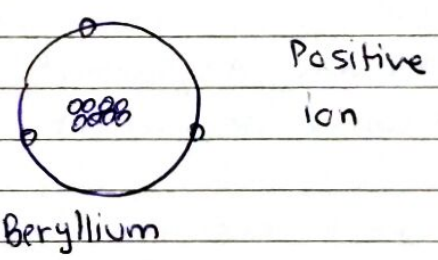 Positive
ion
Beryllium